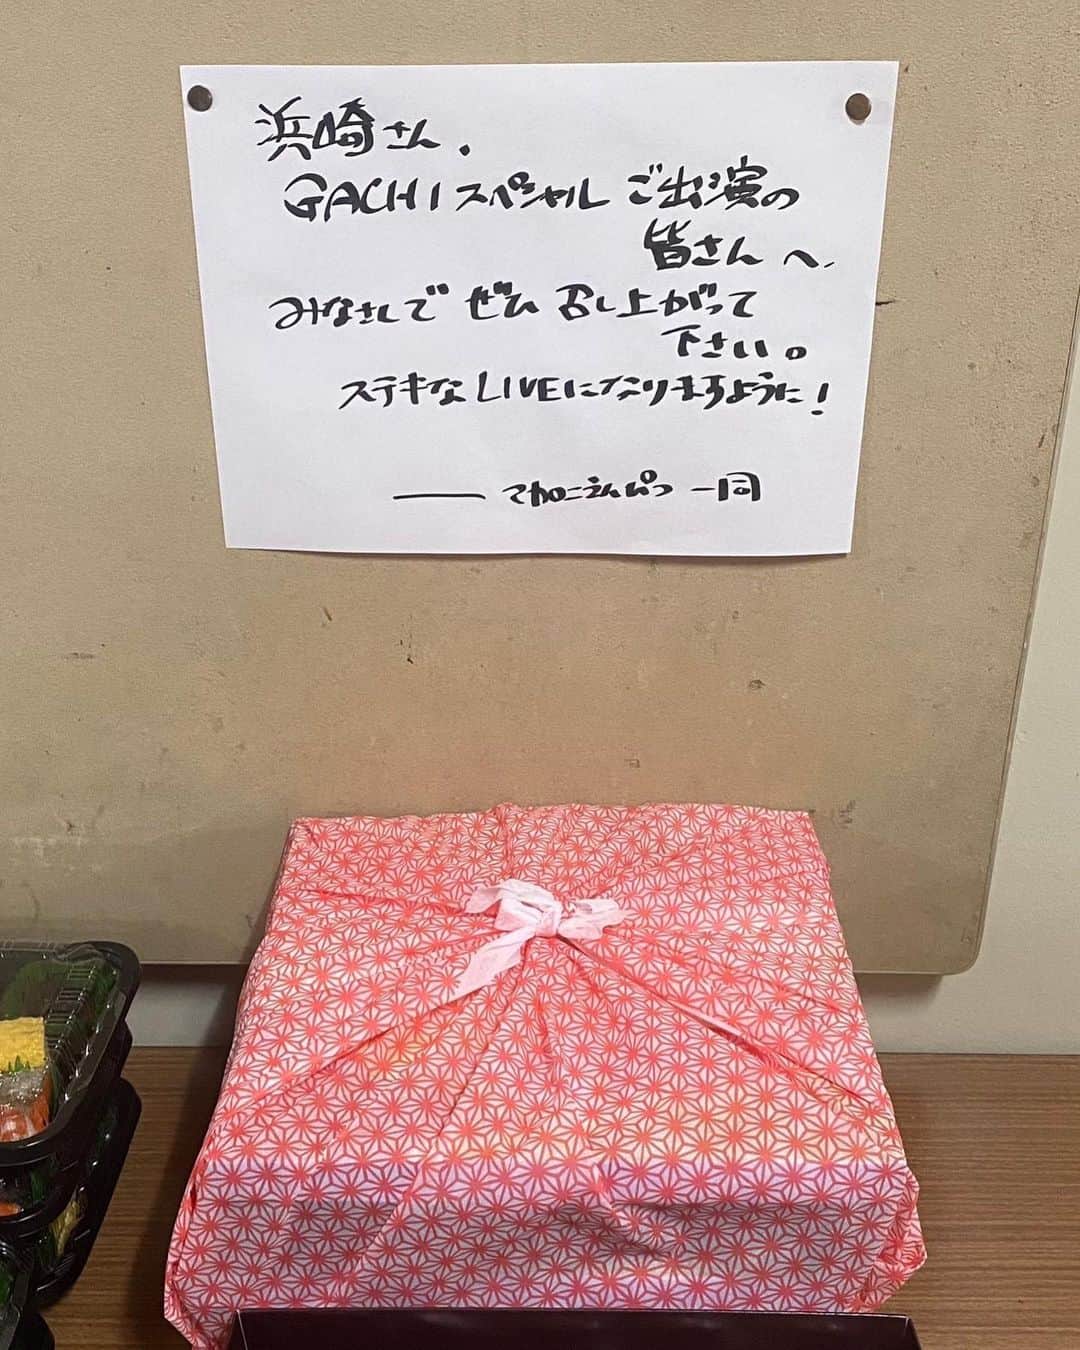 浜崎さん、
GACHIスペシャル ご出演の
皆さん へ、
みなさんで ぜひ 召し上がって
下さい。
ステキな LIVEになりますように!
一同